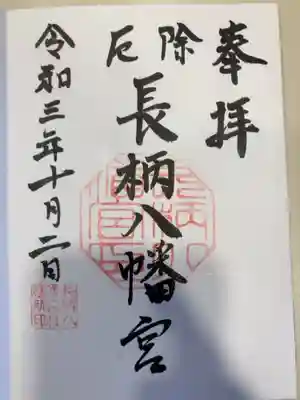 奉拝
厄除
長柄八幡宮
令和三年十月二日